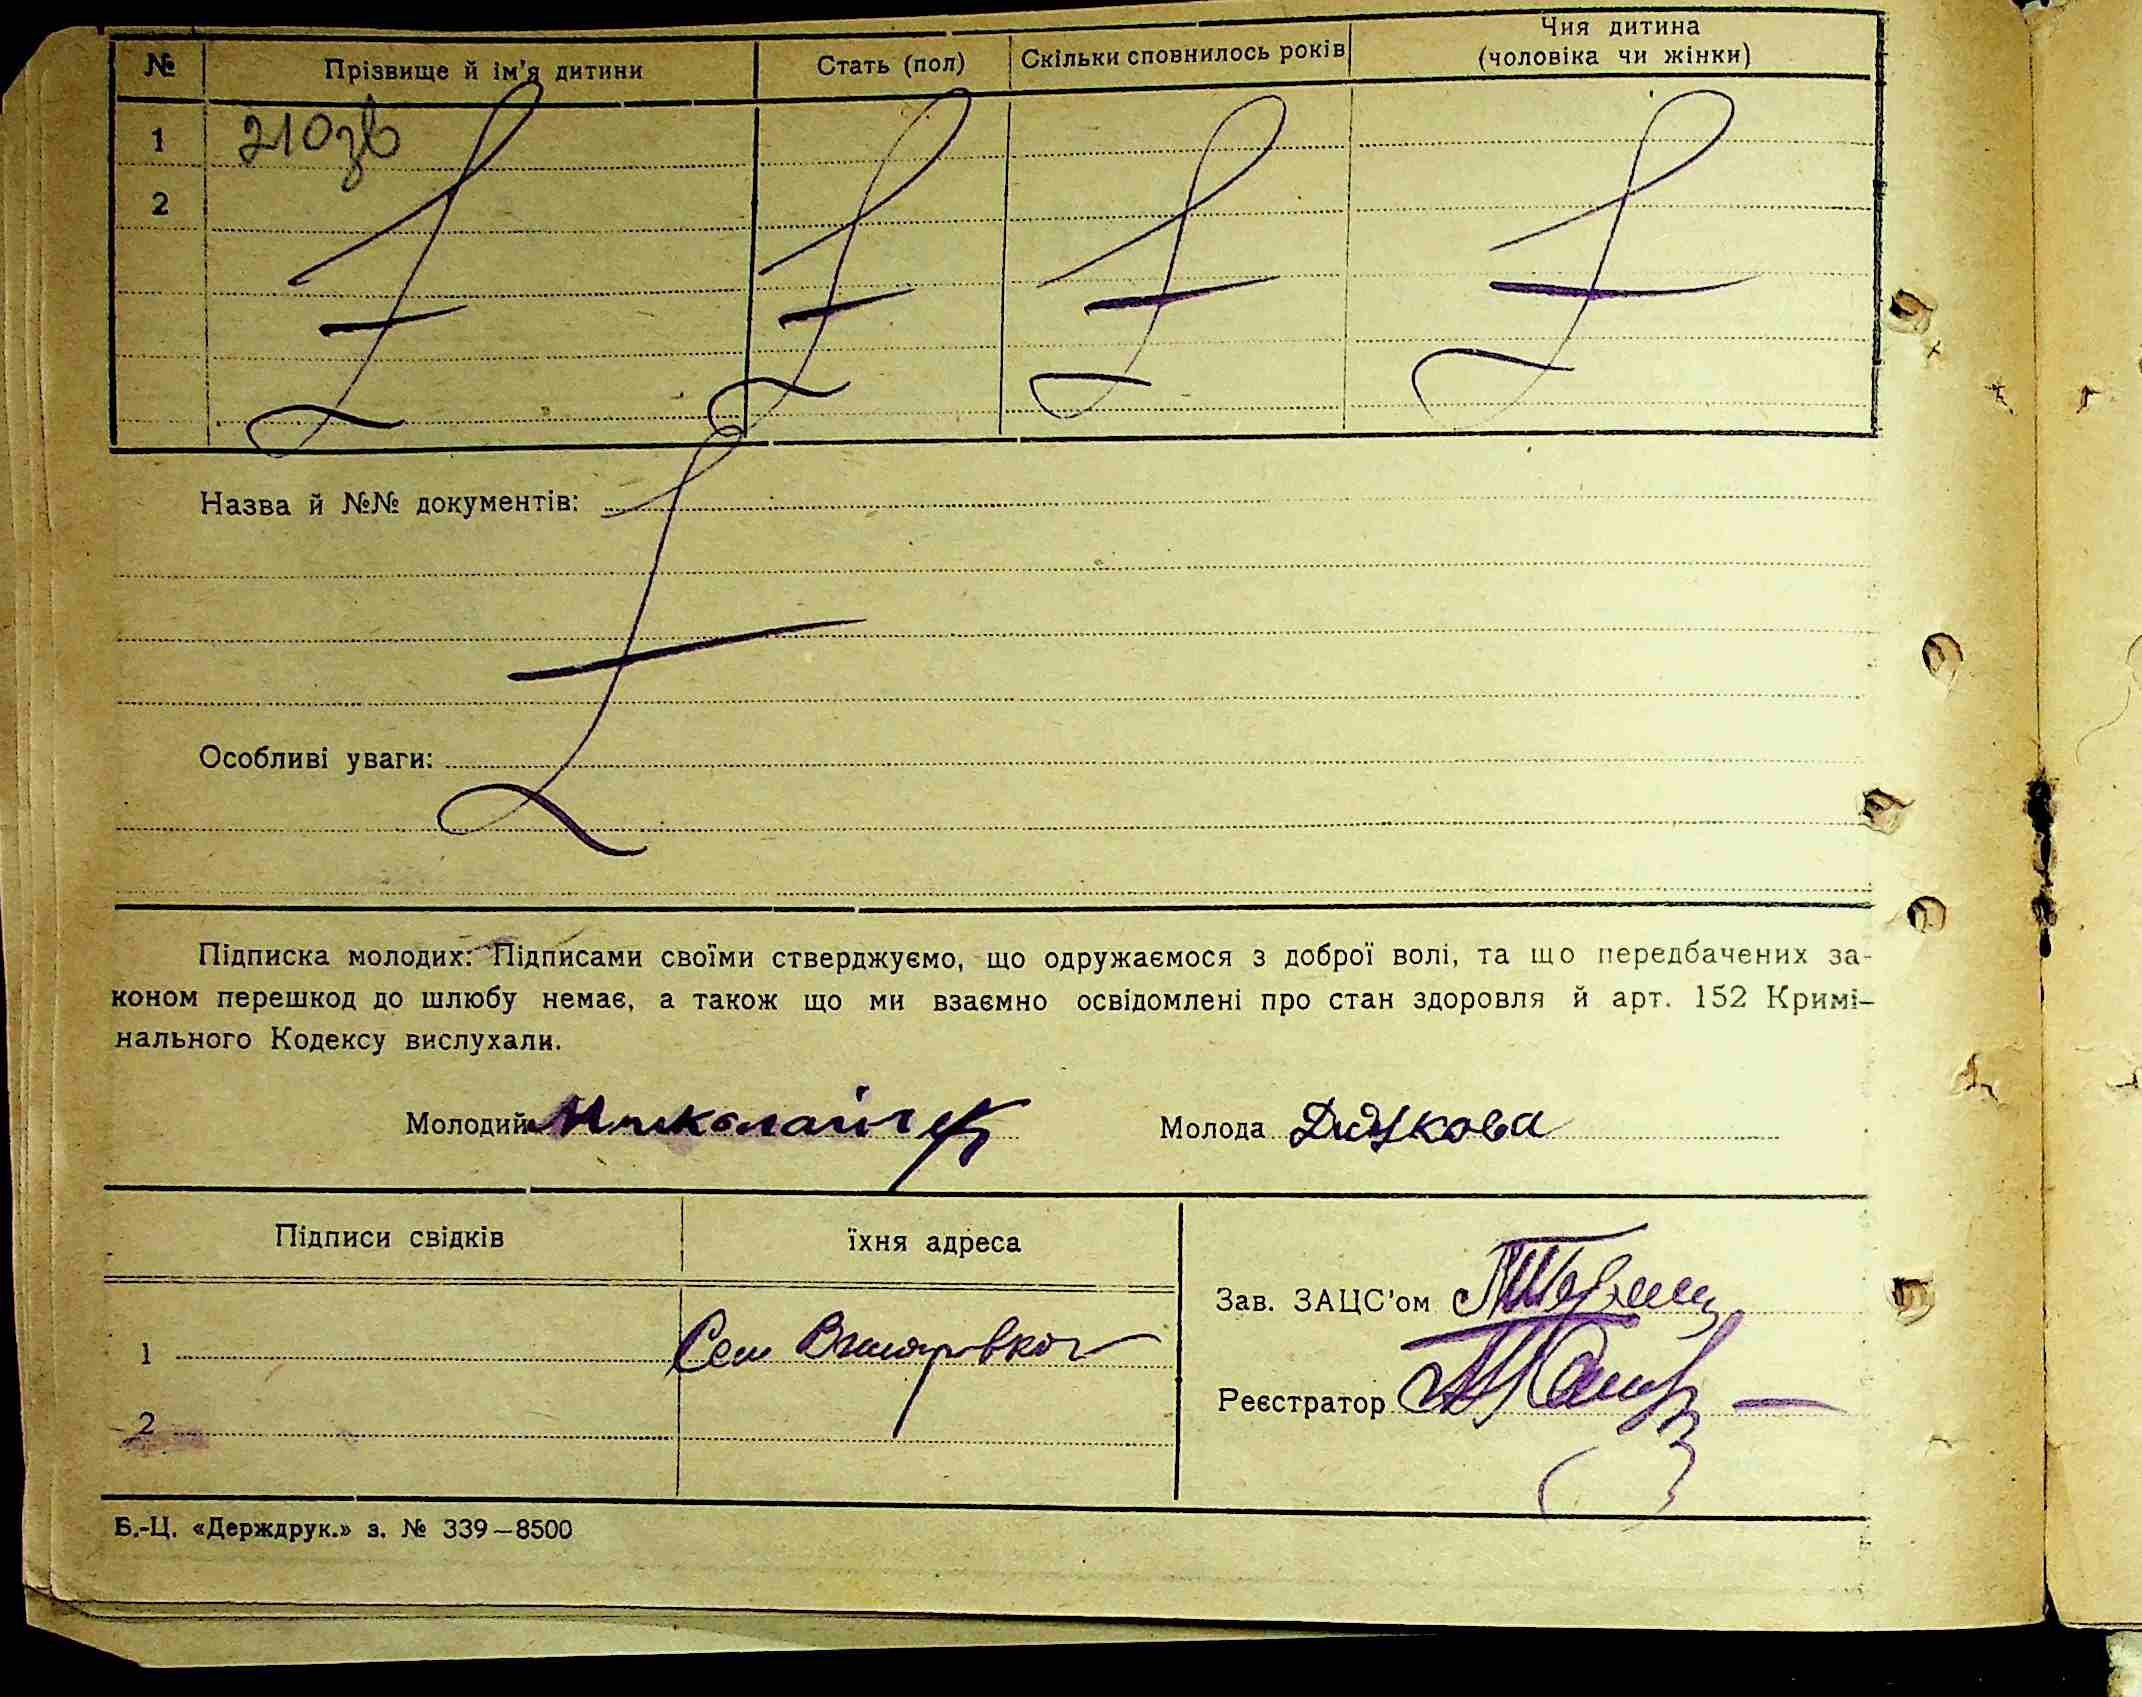 № Прізвище й ім'я дитини Стать (пол) Скільки сповнилось років Чия дитина (чоловіка чи жінки)
1 210зв
2
Назва й №№ документів:
Особливі уваги:
Підписка молодих: Підписами своїми стверджуємо, що одружаємося з доброї волі, та що передбачених за-
коном перешкод до шлюбу немає, а також що ми взаємно освідомлені про стан здоровля й арт. 152 Кримі-
нального Кодексу вислухали.
Молодий Молода Дядукова
Підписи свідків їхня адреса
Зав. ЗАЦС'ом
1 Село
Реєстратор
2
Б.-Ц. «Держдрук.» з. № 339—8500